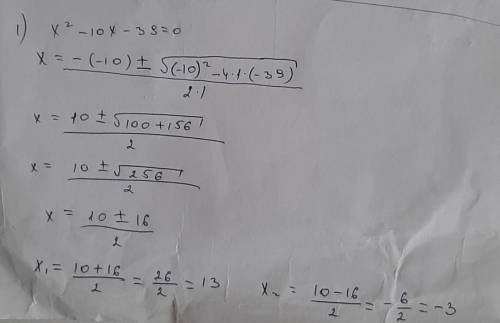 1) x² - 10x - 39 = 0
x = -(-10) ± √(-10)² - 4·1·(-39) / 2·1
x = 10 ± √100 + 156 / 2
x = 10 ± √256 / 2
x = 10 ± 16 / 2
x₁ = 10+16 / 2 = 26 / 2 = 13
x₂ = 10-16 / 2 = -6 / 2 = -3